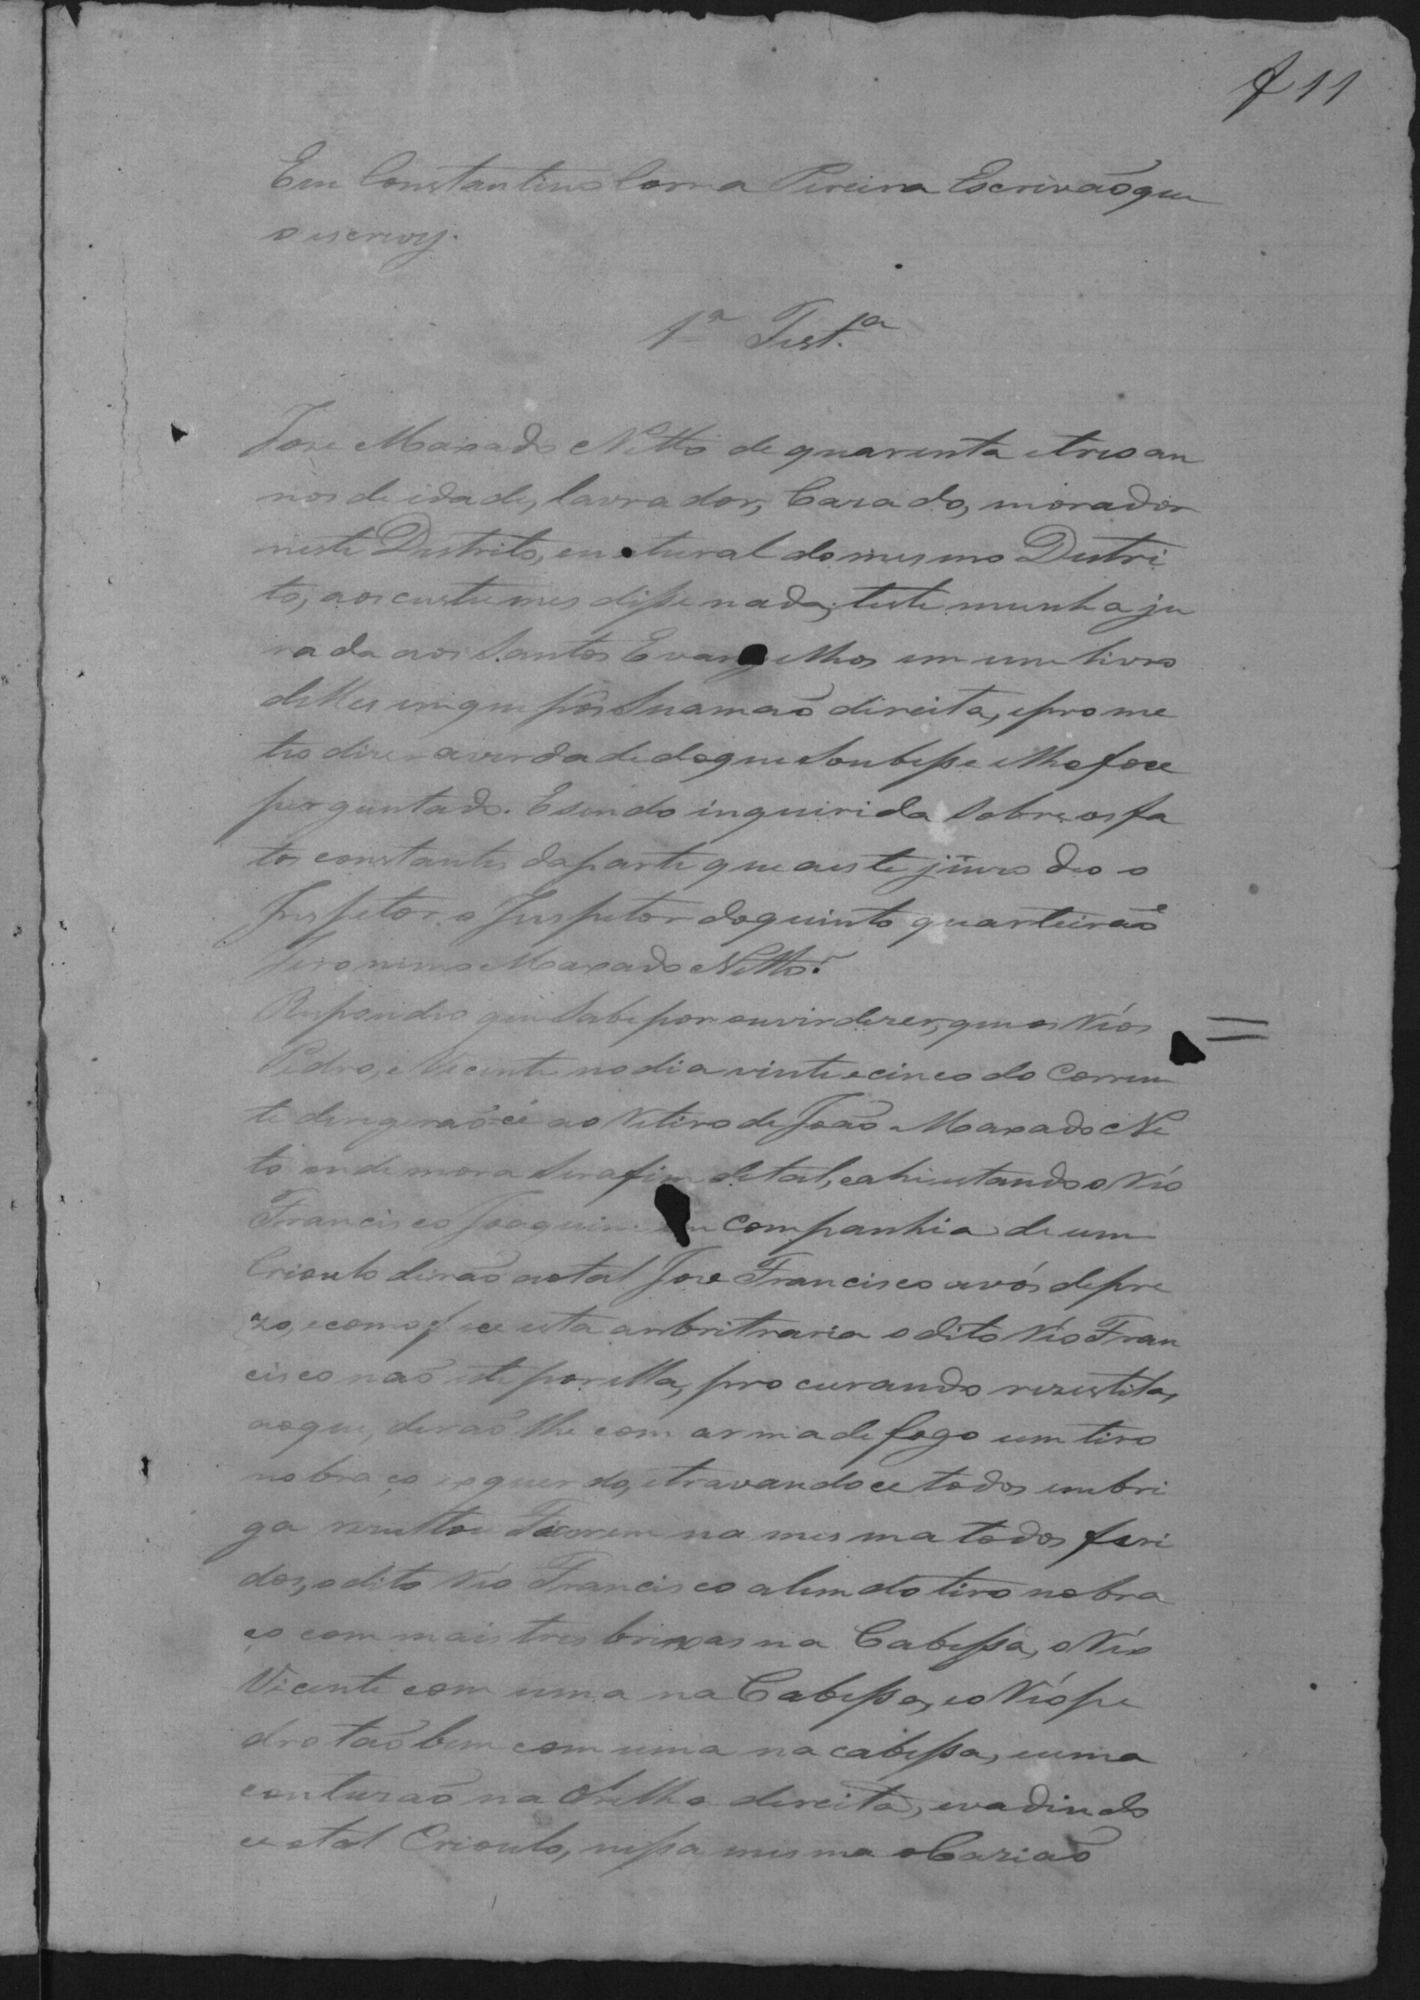 f 11
Eu Constantino Corrêa Pereira Escrivaõ que
o escrevy.
1ª Test.ª
Jose Maxado Netto de quarenta e tres an
nos de idade, lavrador, Cazado, morador
neste Destrito, e natural do mesmo Destri
to, aos custumes disse nada, testemunha ju
rada aos Santos Evangelhos em um livro
delles em que pôs Sua maõ direita, e prome
teo dizer a verdade do que Soubesse e lhe foce
perguntado. E sendo inquirida Sobre os fa
tos constantes da parte que a este juizo deo o
Inspetor o Inspetor do quinto quarteiraõ
Jeronimo Maxado Netto.
Respondeo que Sabe por ouvir dizer, que os Réos
Pedro, e Vicente no dia vinte e cinco do Corren
te dirigiraõ ce ao Retiro de João Maxado Ne
to onde mora Serafim de tal, e ahi estando o Réo
Francisco Joaquim em Companhia de um
Crioulo deraõ ao tal Jose Francisco a vós de pre
zo, e como foce esta arbritraria o dito Réo Fran
cisco naõ este por ella, procurando rezestila,
ao que, deraõ lhe com arma de fogo um tiro
no braço esquerdo, e travando ce todos em bri
ga rezultou Ficarem na mesma todos feri
dos, o dito Réo Francisco alem do tiro no bra
ço com mais tres brexas na Cabessa, o Réo
Vicente com uma na Cabessa, e o Réo Pe
dro taõ bem com uma na cabessa, e uma
contuzaõ na Orelha direita, evadindo
ce o tal Crioulo, nessa mesma oCaziaõ